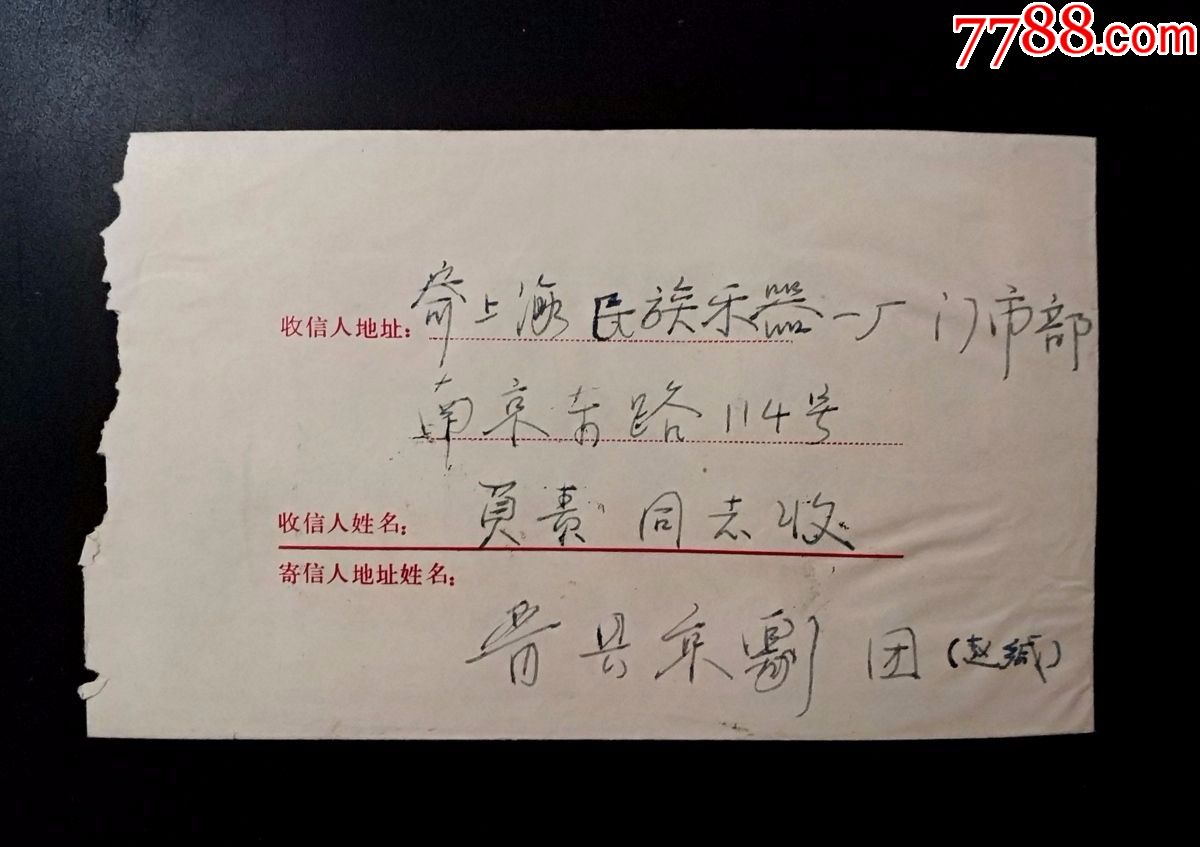 7788.com
收信人地址：寄上海民族乐器一厂门市部
南京东路114号
收信人姓名：負责同志收
寄信人地址姓名：
县京剧团（赵缄）